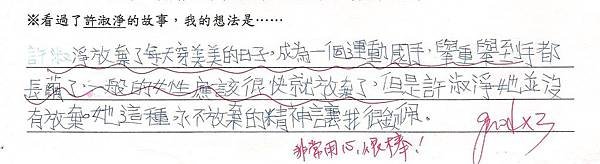 ※看過了許淑淨的故事，我的想法是……
許淑淨放棄了每天穿美美的日子，成為一個運動國手，舉重舉到手都
長繭了，一般的女性應該很快就放棄了，但是許淑淨她並沒
有放棄。她這種永不放棄的精神讓我很欽佩。
good x3
非常用心，很棒！